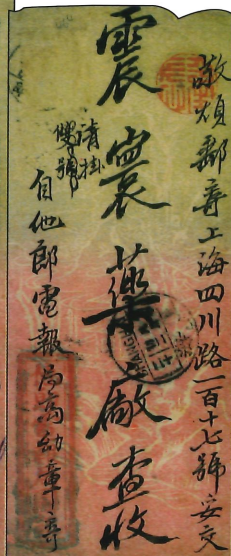 敬煩郵寄上海四川路一百十七號妥交
震寰藥廠查收
請掛雙號
自他郎電報局高幼章寄